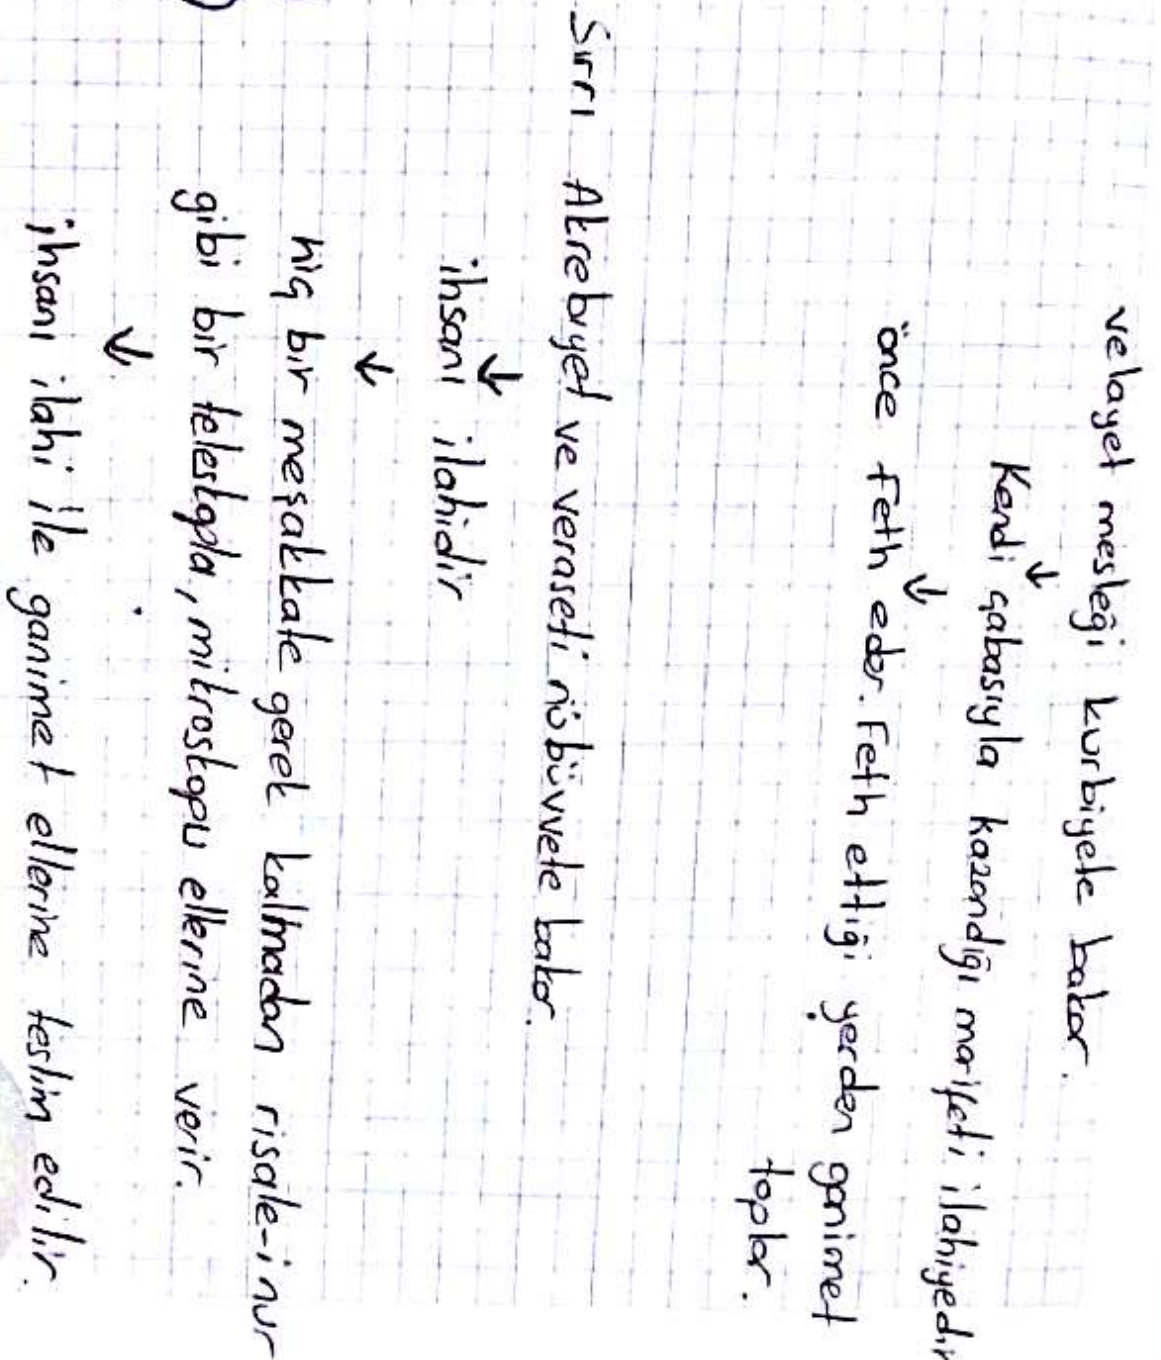 velayet mesleği kurbiyete bakar.
↓
Kendi çabasıyla kazandığı marifeti ilahiyedir
↓
önce feth eder. Feth ettiği yerden ganimet
toplar.
Sırrı Akrebiyet ve veraseti nübüvvete bakar.
↓
ihsanı ilahidir
↓
hiç bir meşakkate gerek kalmadan risale-i nur
gibi bir teleskopla, mikroskopu ellerine verir.
↓
ihsanı ilahi ile ganimet ellerine teslim edilir.